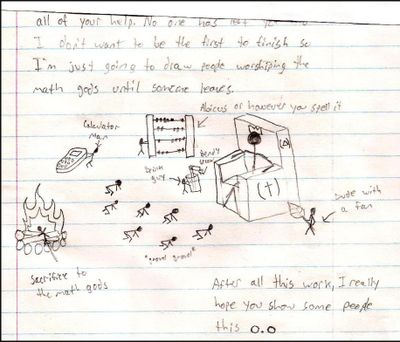 all of your help. No one has left
I don't want to be the first to finish so
I'm just going to draw people worshiping the
math gods until someone leaves.
Abicus or however you spell it
Calculator
Man
Drink
guy
Bendy
straw
(t)
Dude with
a fan
*grovel grovel*
Sacrifice to
the math gods
After all this work, I really
hope you show some people
this o.o